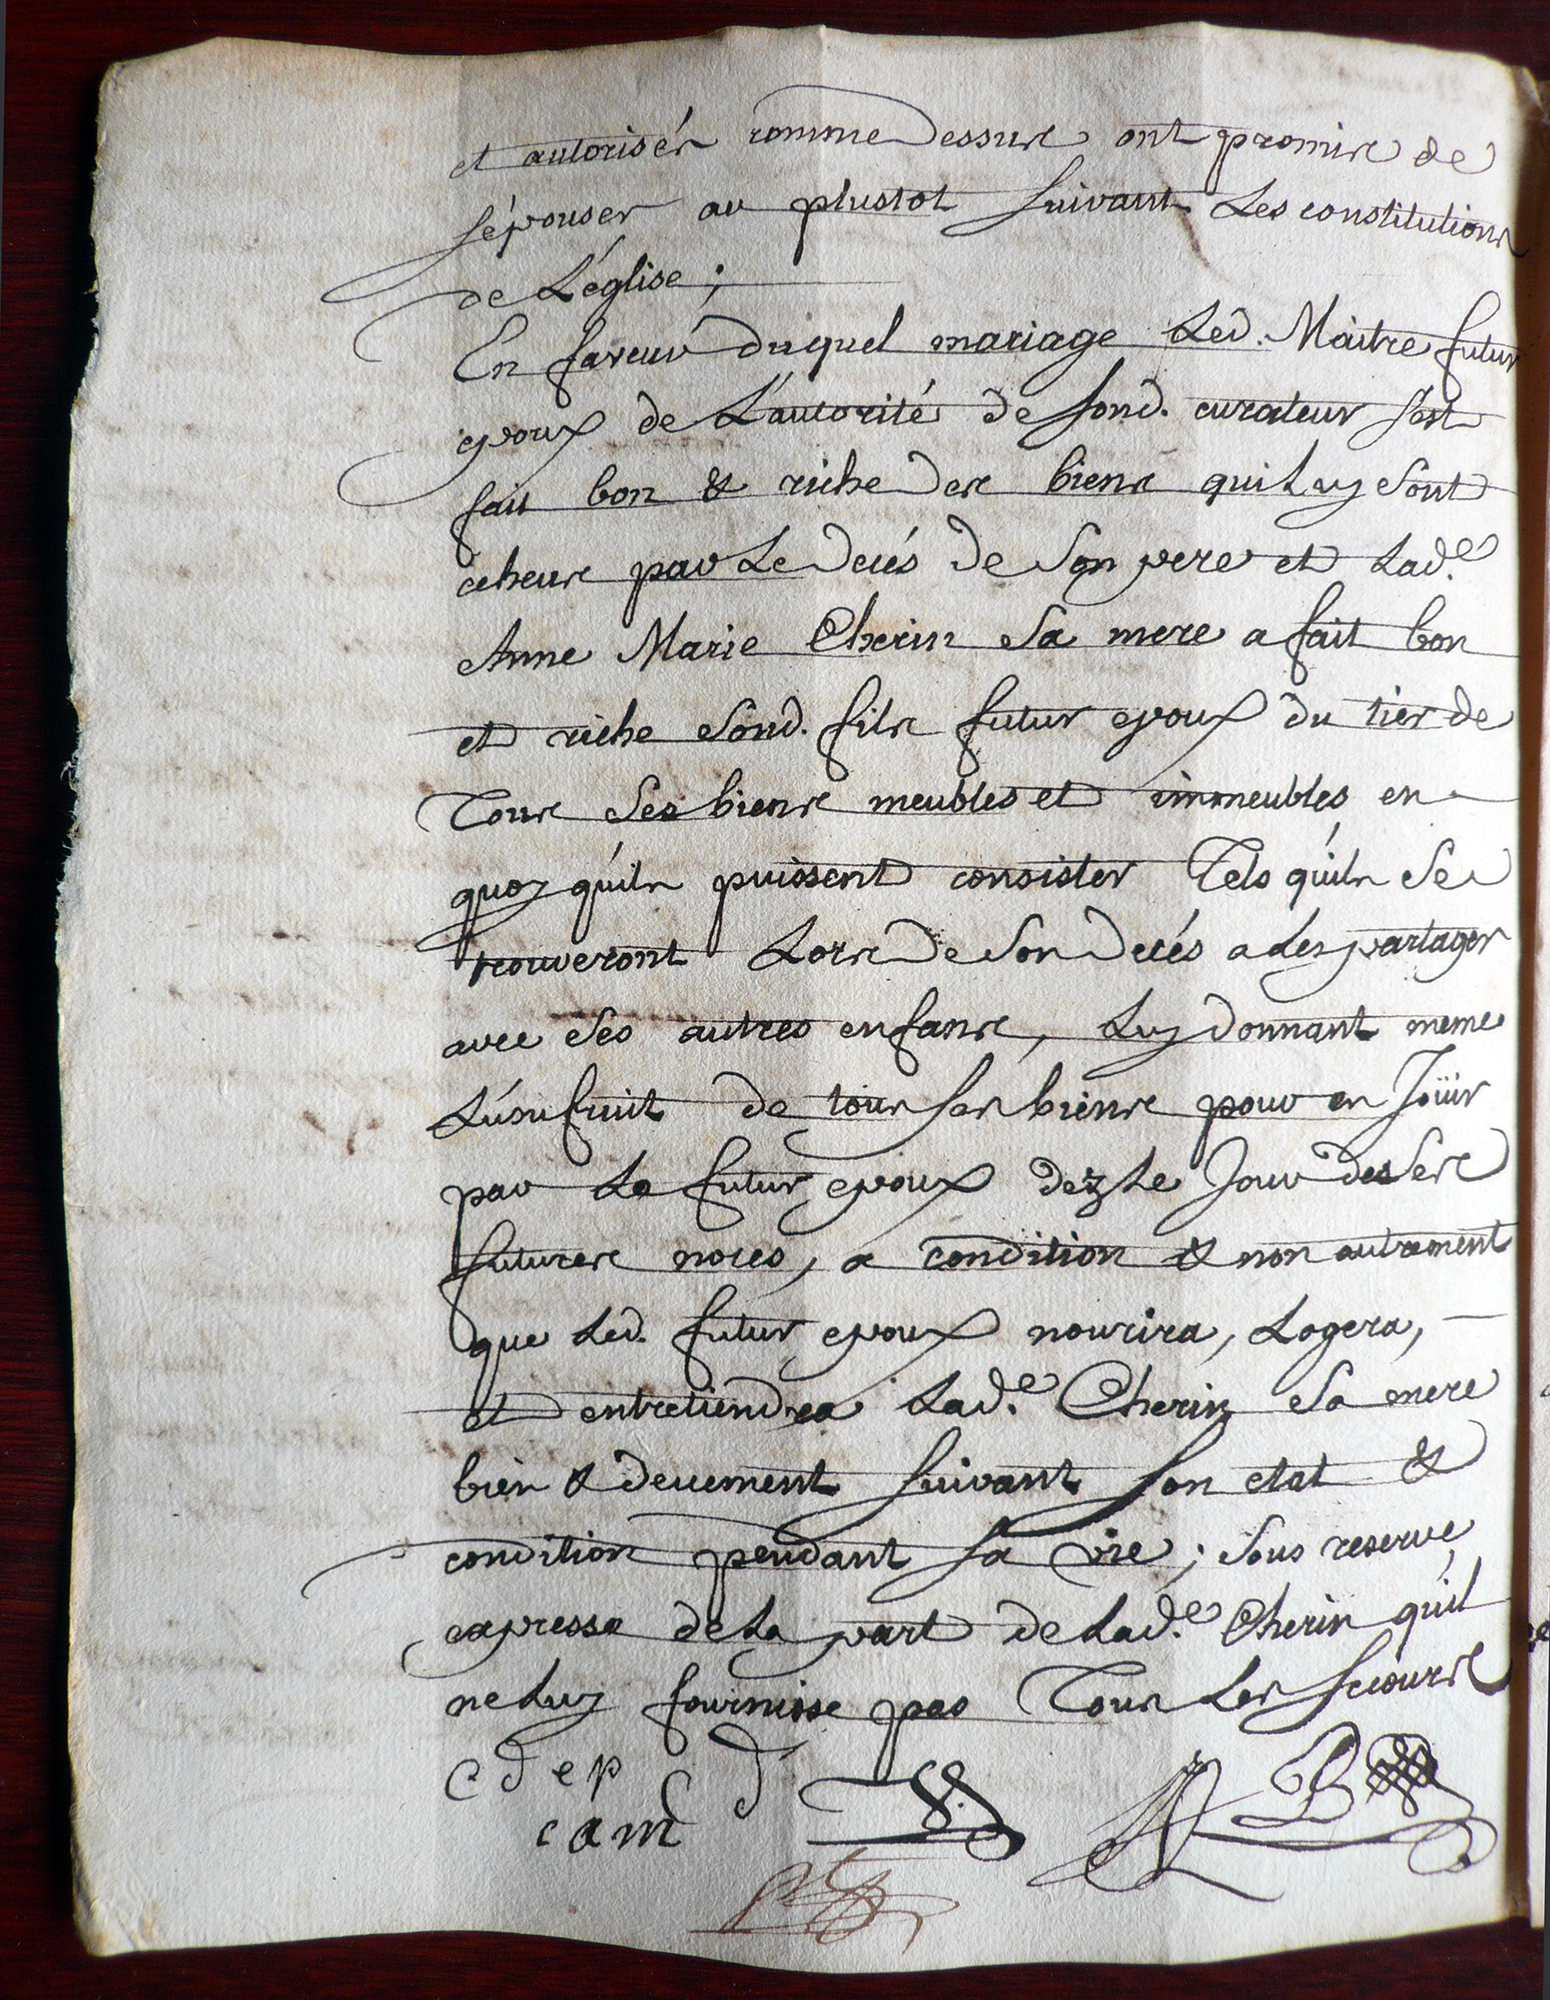 et autorisés comme dessus ont promis de
sépouser au plustot suivant Les constitutions
de L'église ;
En faveur duquel mariage Led. Maitre futur
epoux de L'autorité de sond. curateur sest
fait bon & riche des biens qui Luy sont
echeus par Le decés de son pere et Lad.e
Anne Marie Cherin sa mere a fait bon
et riche sond. fils futur epoux du tiers de
Tous ses biens meubles et immeubles en
quoy qu'ils puissent consister Tels qu'ils se
trouveront Lors de son decés a Les partager
avec ses autres enfans, Luy donnant meme
L'usufruit de tous ses biens pour en Joüir
par Le futur epoux dez Le Jour des ses
futures noces, a condition & non autrement
que Led. futur epoux nourira, Logera,
et entretiendra Lad.e Cherin sa mere
bien & deuement suivant son etat &
condition pendant sa vie ; sous reserve
expresse de La part de Lad.e Cherin qu'il
ne Luy fournisse pas Tous Les secours
c d e p d
c a m
B